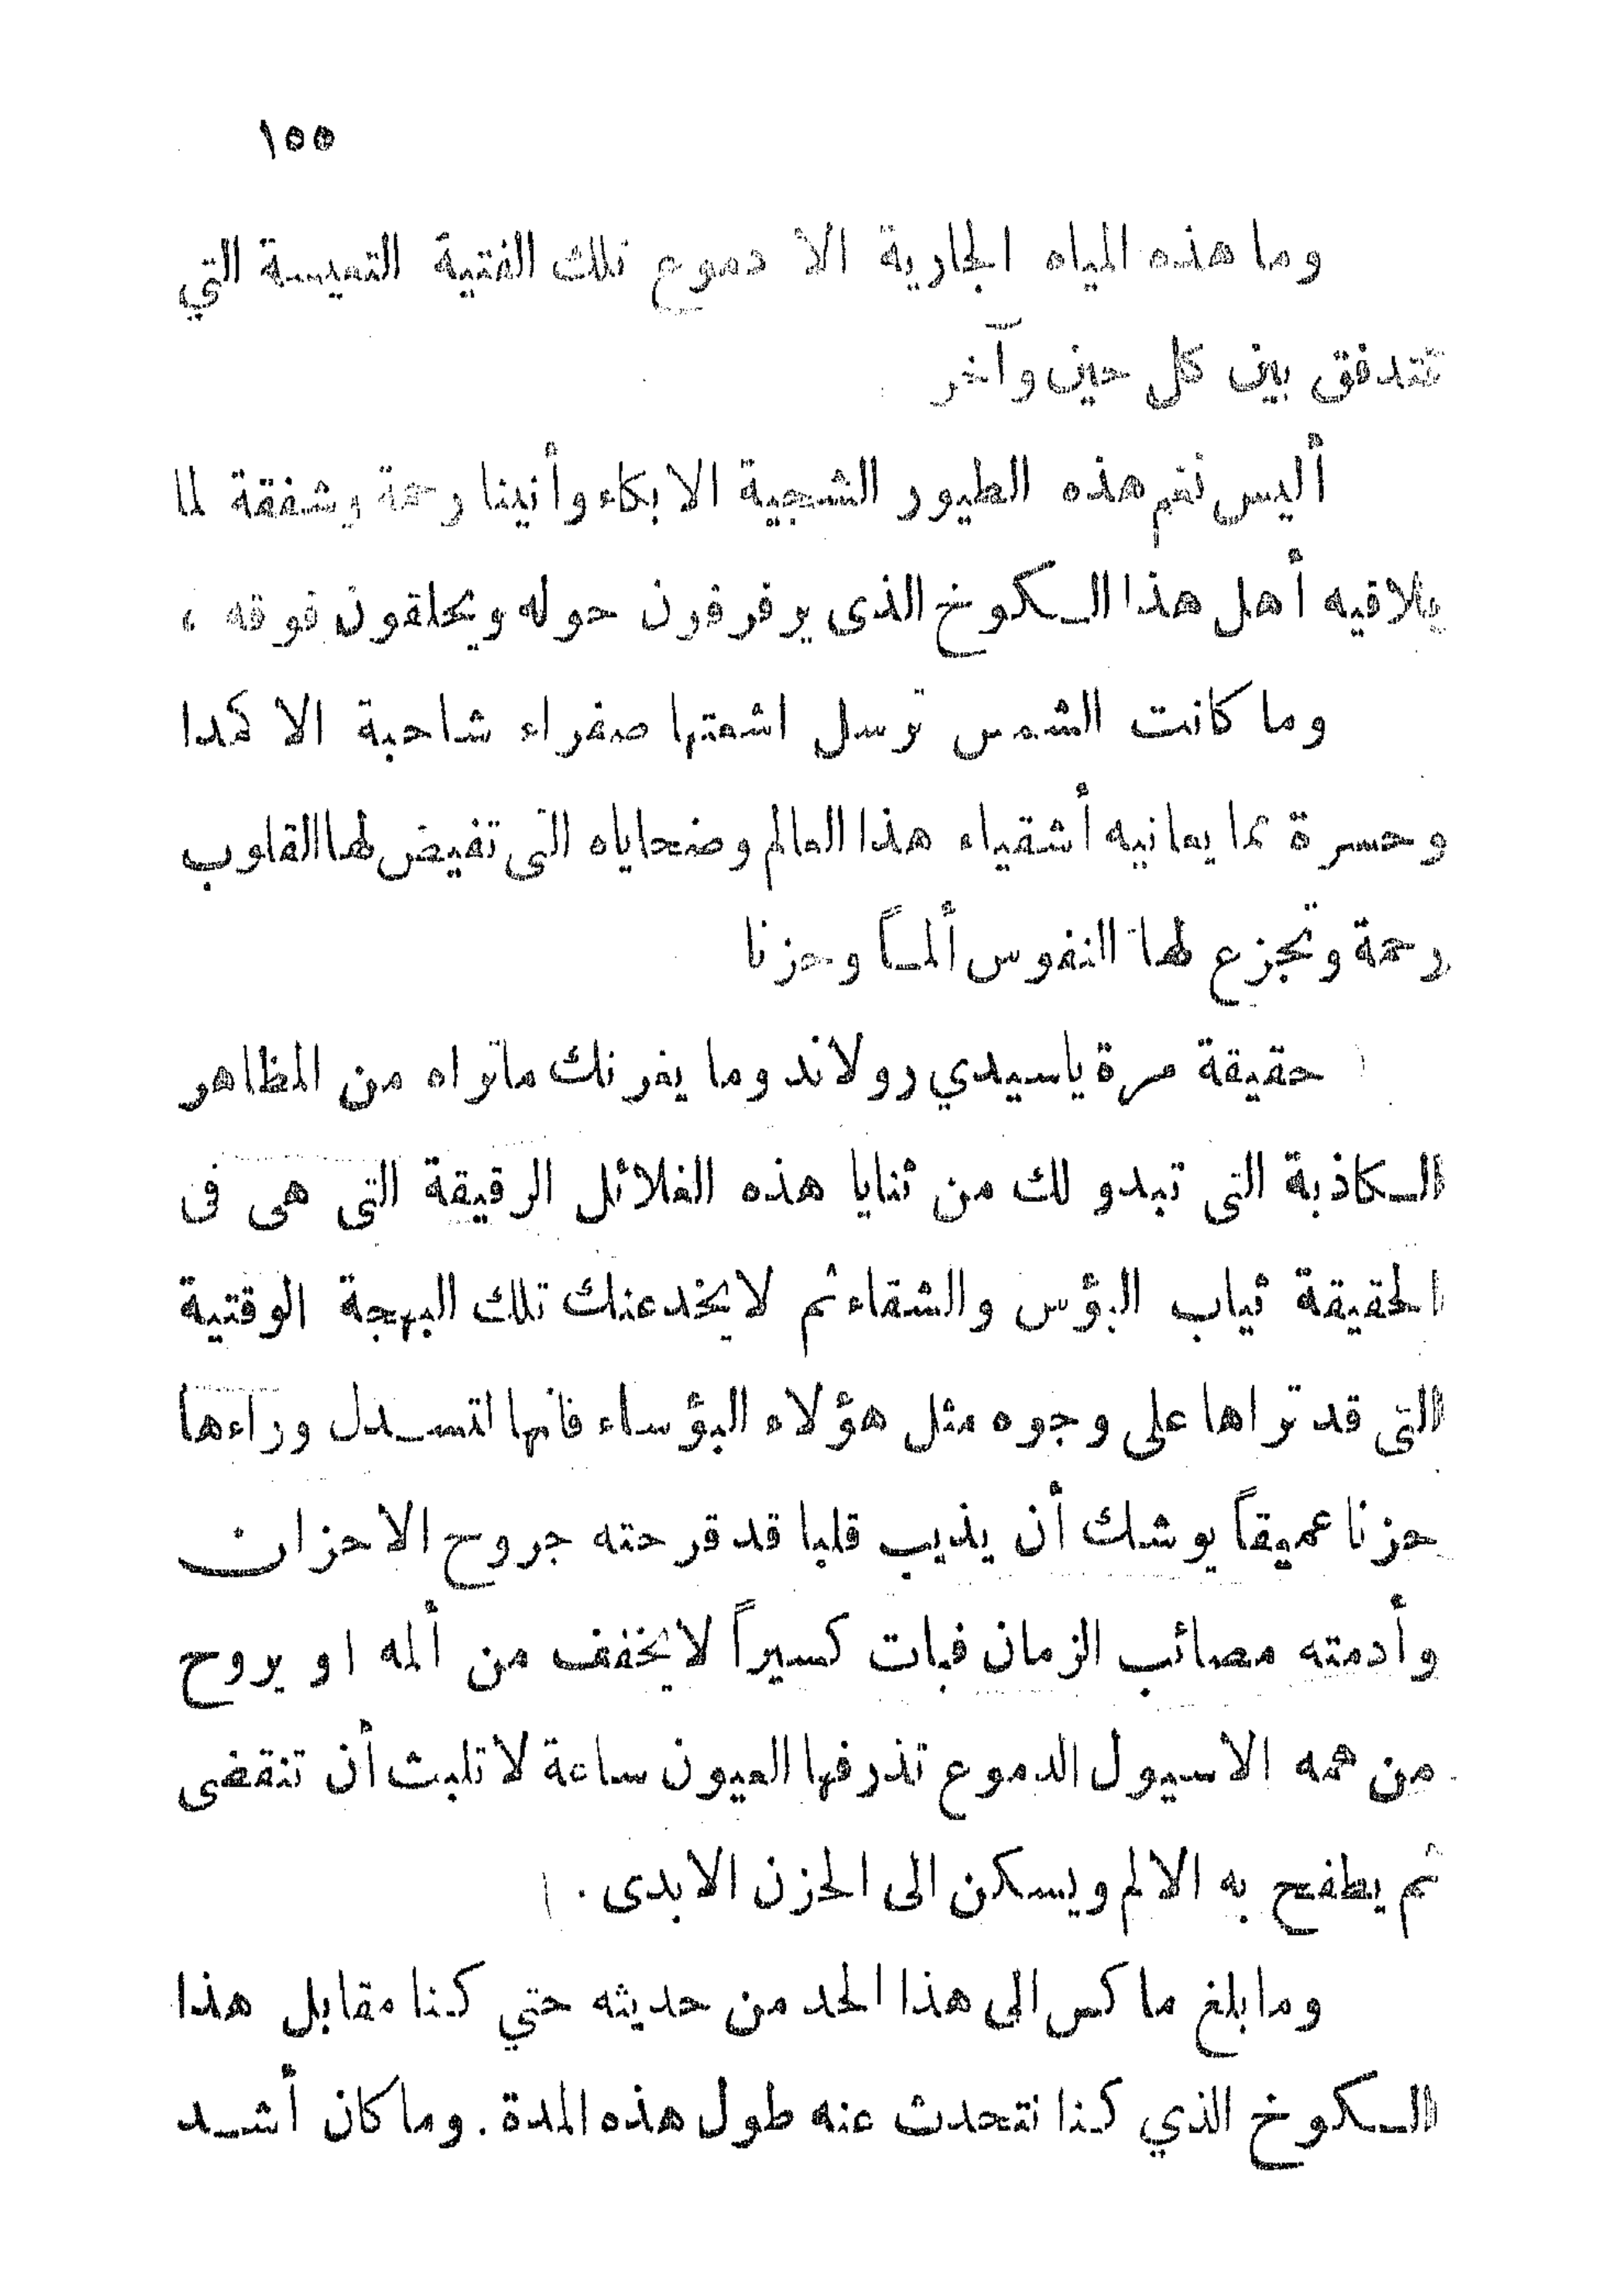 ١٥٥
وما هذه المياه الجارية الا دموع تلك الفتية التعيسة التي
تتدفق بين كل حين وآخر
أليس نغم هذه الطيور الشجية الا بكاء وأنينا رحمة وشفقة لما
يلاقيه أهل هذا الكوخ الذى يرفرفون حوله ويحلقون فوقه ،
وما كانت الشمس ترسل اشعتها صفراء شاحبة الا كمدا
وحسرة مما يعانيه أشقياء هذا العالم وضحاياه التى تفيض لها القلوب
رحمة وتجزع لها النفوس ألماً وحزنا
حقيقة مرة ياسيدي رولاند وما يغرنك ماتراه من المظاهر
الكاذبة التى تبدو لك من ثنايا هذه الغلائل الرقيقة التى هى فى
الحقيقة ثياب البؤس والشقاء ثم لا يخدعنك تلك البهجة الوقتية
التى قد تراها على وجوه مثل هؤلاء البؤساء فانها لتسدل وراءها
حزنا عميقاً يوشك أن يذيب قلبا قد قرحته جروح الاحزان
وأدمته مصائب الزمان فبات كسيراً لا يخفف من ألمه او يروح
من همه الا سيول الدموع تذرفها العيون ساعة لا تلبث أن تنقضى
ثم يطفح به الالم ويسكن الى الحزن الابدى .
وما بلغ ماكس الى هذا الحد من حديثه حتي كنا مقابل هذا
الكوخ الذي كنا نتحدث عنه طول هذه المدة . وما كان أشد